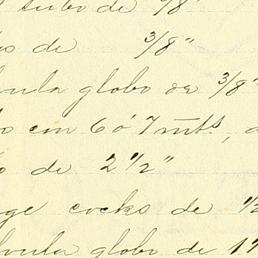 tubo de /8"
os de 3/8"
vula globo de 3/8"
o con 6 ó 7 mts,
o de 2 1/2"
ge cocks de
vula globo de 1